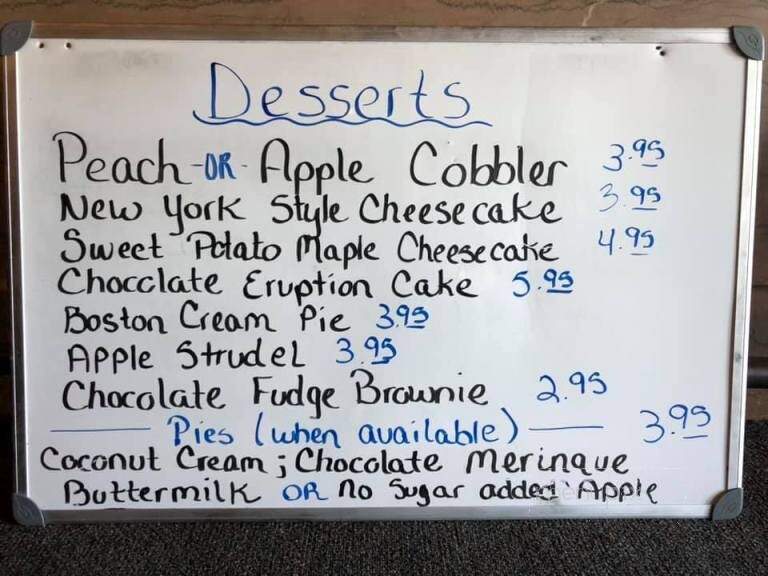 Desserts
Peach -OR- Apple Cobbler 3.95
New York Style Cheesecake 3.95
Sweet Potato Maple Cheesecake 4.95
Chocclate Eruption Cake 5.95
Boston Cream Pie 3.95
Apple Strudel 3.95
Chocolate Fudge Brownie 2.95
Pies (when available) 3.95
Coconut Cream ; Chocolate Meringue
Buttermilk OR No Sugar added Apple